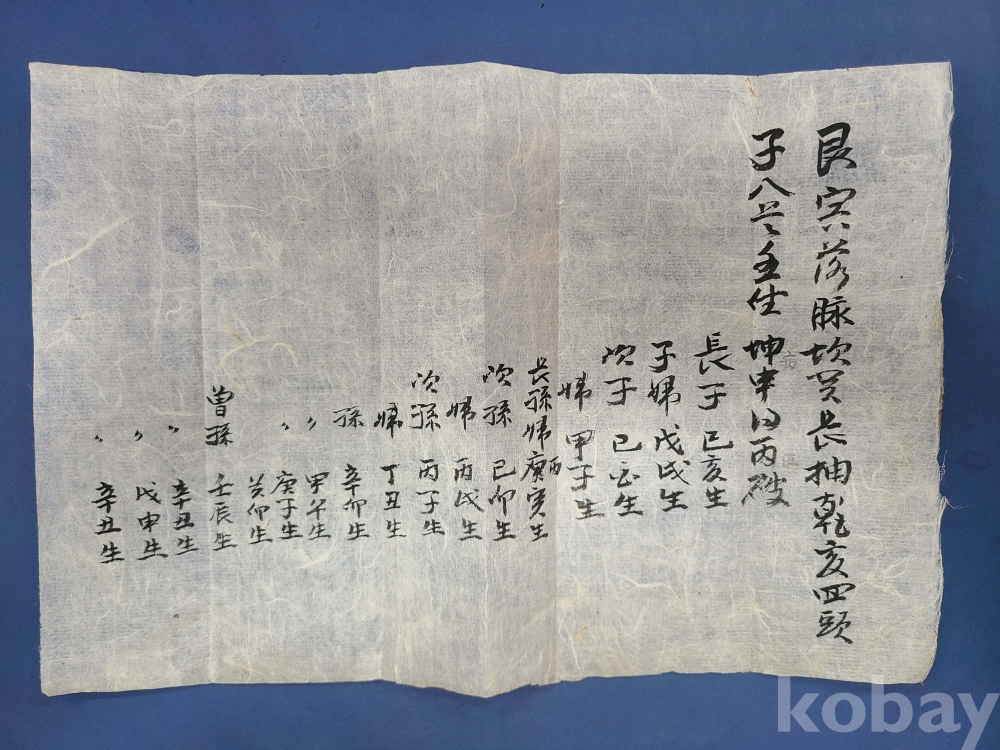 艮寅落脉坎癸長抽乾亥回頭
子入首壬坐 坤申得丙破
長子 己亥生
子婦 戊戌生
次子 己酉生
婦 甲子生
長孫婦 丙 庚寅生
次孫 己卯生
婦 丙戌生
次孫 丙子生
婦 丁丑生
孫 辛卯生
〃 甲午生
〃 庚子生
癸卯生
曾孫 壬辰生
〃 辛丑生
〃 戊申生
〃 辛丑生
kobay